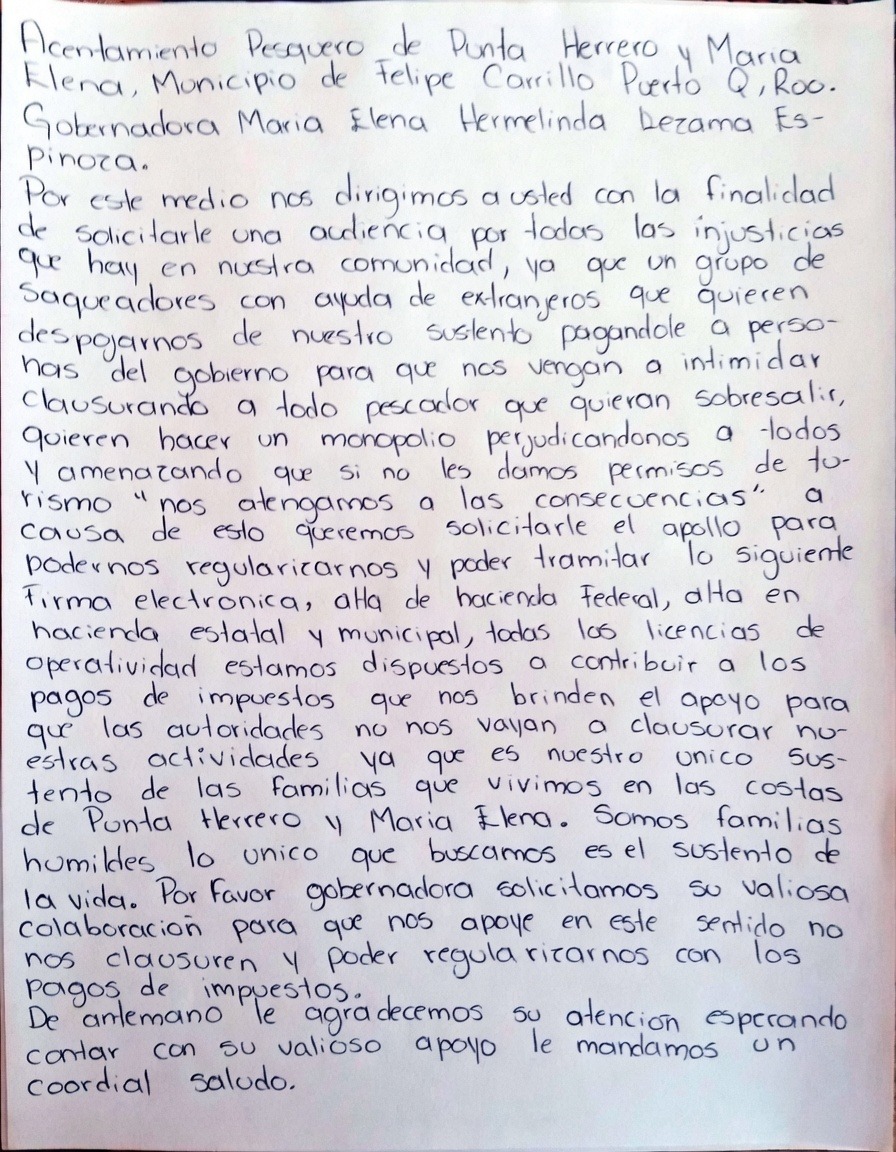 Acentamiento Pesquero de Punta Herrero y Maria
Elena, Municipio de Felipe Carrillo Puerto Q, Roo.
Gobernadora Maria Elena Hermelinda Lezama Es-
pinoza.
Por este medio nos dirigimos a usted con la finalidad
de solicitarle una audiencia por todas las injusticias
que hay en nuestra comunidad, ya que un grupo de
saqueadores con ayuda de extranjeros que quieren
despojarnos de nuestro sustento pagandole a perso-
nas del gobierno para que nos vengan a intimidar
clausurando a todo pescador que quieran sobresalir,
quieren hacer un monopolio perjudicandonos a todos
y amenazando que si no les damos permisos de tu-
rismo "nos atengamos a las consecuencias" a
causa de esto queremos solicitarle el apollo para
podernos regularizarnos y poder tramitar lo siguiente
firma electronica, alta de hacienda Federal, alta en
hacienda estatal y municipal, todas las licencias de
operatividad estamos dispuestos a contribuir a los
pagos de impuestos que nos brinden el apoyo para
que las autoridades no nos vayan a clausurar nu-
estras actividades ya que es nuestro unico sus-
tento de las familias que vivimos en las costas
de Punta Herrero y Maria Elena. Somos familias
humildes lo unico que buscamos es el sustento de
la vida. Por Favor gobernadora solicitamos su valiosa
colaboración para que nos apoye en este sentido no
nos clausuren y poder regularizarnos con los
pagos de impuestos.
De antemano le agradecemos su atencion esperando
contar con su valioso apoyo le mandamos un
coordial saludo.